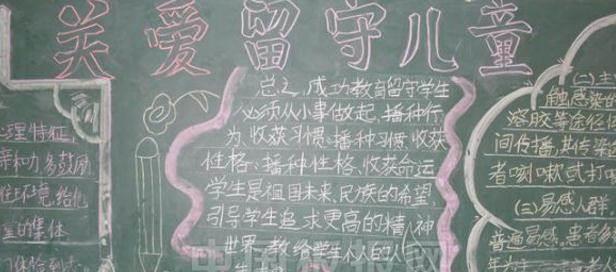 关爱留守儿童
心理特征,
亲和力,多鼓励
性环境,给他
的集体
总之,成功教育留守学生
必须从小事做起,播种行
为、收获习惯、播种习惯、收获
性格、播种性格、收获命运
学生是祖国未来、民族的希望,
引导学生追求更高的精神
世界,教给学生不人的人
(二)主
触感染
溶胶等途径
间传播,其传染
者咧嗽或打
(三)易感人群
普遍易感,患者
中国板报网